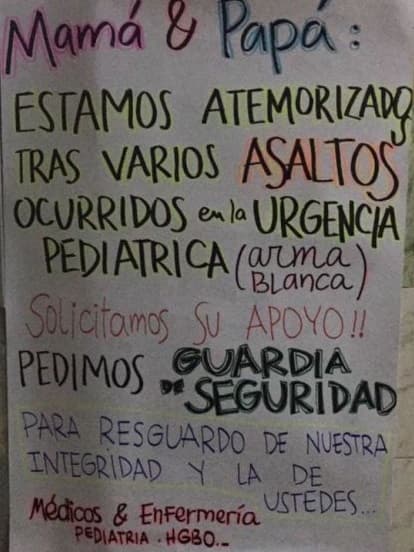 Mamá & Papá:
ESTAMOS ATEMORIZADOS
TRAS VARIOS ASALTOS
OCURRIDOS en la URGENCIA
PEDIATRICA (arma
BLANCA)
Solicitamos Su APOYO!!
PEDIMOS GUARDIA
DE SEGURIDAD
PARA RESGUARDO DE NUESTRA
INTEGRIDAD Y LA DE
USTEDES...
Médicos & Enfermería
PEDIATRIA - HGBO.-